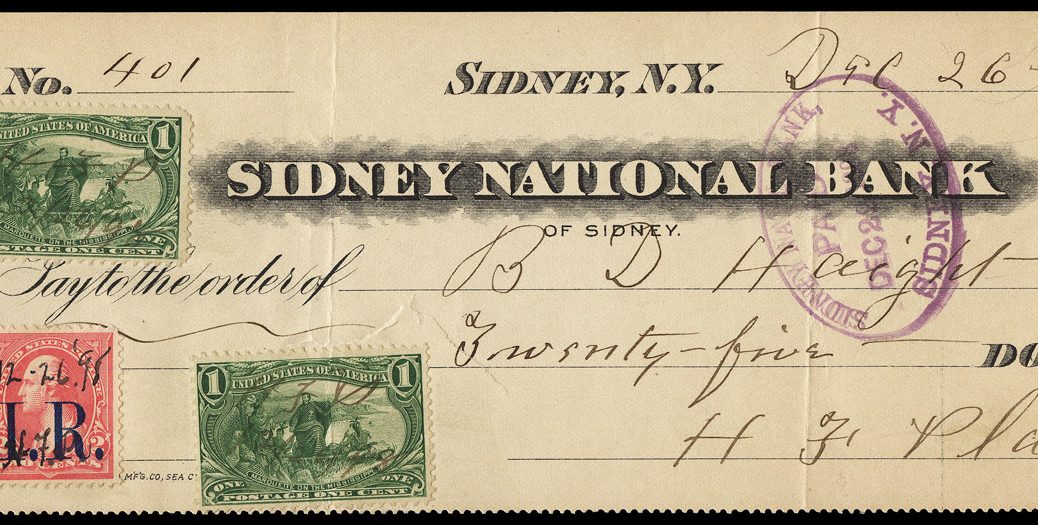 No. 401
SIDNEY, N.Y. Dec 26
UNITED STATES OF AMERICA 1
MARQUETTE ON THE MISSISSIPPI.
ONE
POSTAGE ONE CENT
SIDNEY NATIONAL BANK
OF SIDNEY.
SIDNEY NATIONAL BANK,
PAID
DEC 2
SIDNEY N.Y.
Pay to the order of B D Haight
Twenty-five DO
12-26 '98
I.R.
CENTS
H F Pla
1 UNITED STATES OF AMERICA 1
MARQUETTE ON THE MISSISSIPPI.
ONE ONE
POSTAGE ONE CENT
MF'G. CO., SEA C